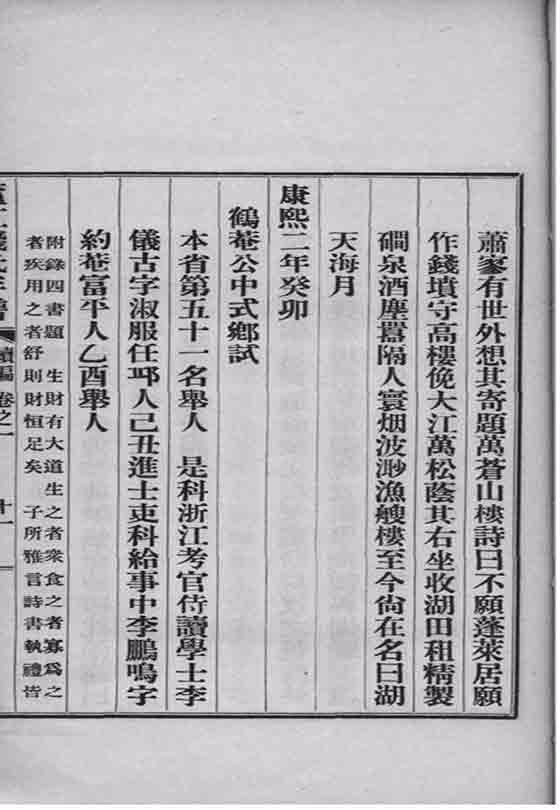 蕭寥有世外想其寄題萬蒼山樓詩曰不願蓬萊居願
作錢墳守高樓俛大江萬松蔭其右坐收湖田租精製
磵泉酒塵囂隔人寰烟波渺漁艘樓至今尙在名曰湖
天海月
康熙二年癸卯
鶴菴公中式鄕試
本省第五十一名舉人　是科浙江考官侍讀學士李
儀古字淑服任邱人己丑進士吏科給事中李鵬鳴字
約菴富平人乙酉舉人
附錄四書題　生財有大道生之者衆食之者寡爲之
者疾用之者舒則財恒足矣　子所雅言詩書執禮皆
續編 卷之一 十一